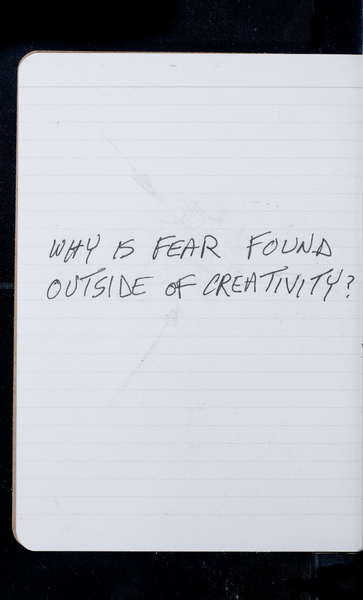 WHY IS FEAR FOUND
OUTSIDE OF CREATIVITY?